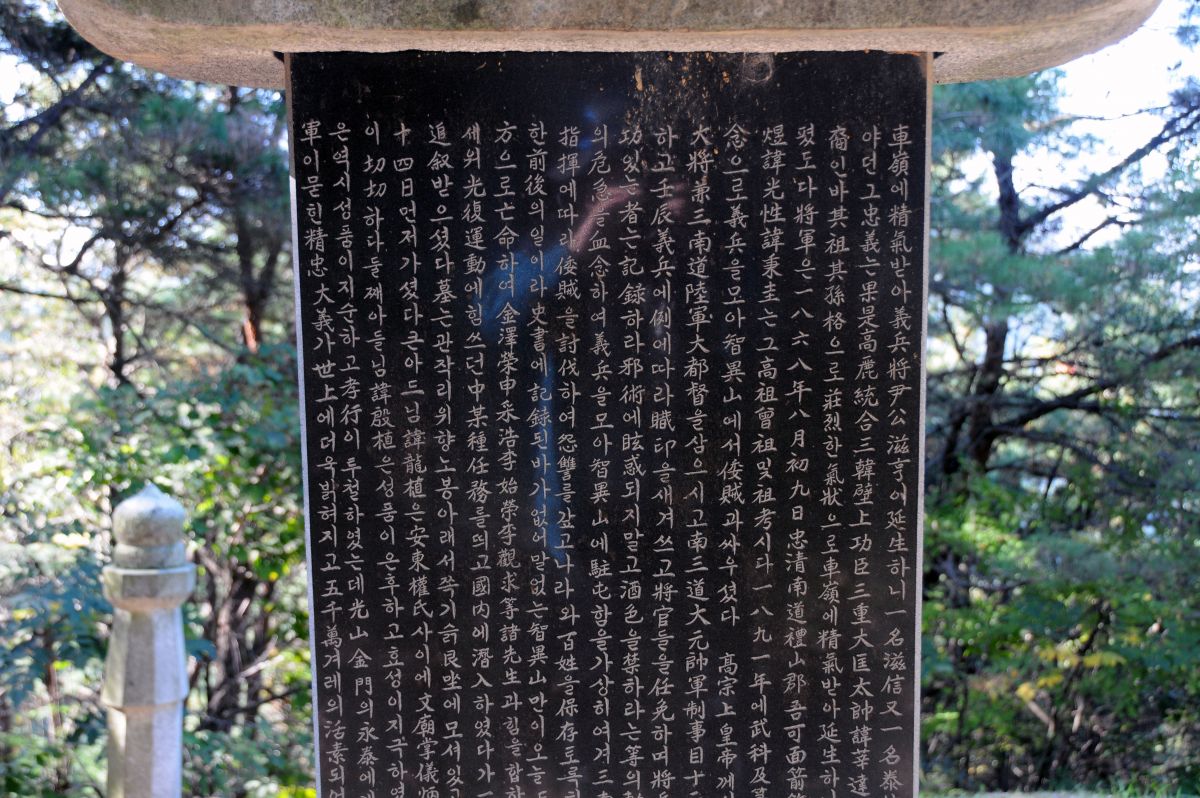 車嶺에精氣받아義兵將尹公滋亨이延生하니一名滋信又一名泰
야던그忠義는果是高麗統合三韓壁上功臣三重大匡太帥諱莘達
裔인바其祖其孫格으로莊烈한氣狀으로車嶺에精氣받아延生하
졌도다將軍은一八六八年八月初九日忠清南道禮山郡吾可面箭
煜諱光性諱秉圭는그高祖曾祖및祖考시다一八九一年에武科及
念으로義兵을모아智異山에서倭賊과싸우셨다 高宗上皇帝께
大將兼三南道陸軍大都督을삼으시고南三道大元帥軍制事目十
하고壬辰義兵에例에따라職印을새겨쓰고將官들을任免하며將
功있는者는記録하라邪術에眩惑되지말고酒色을禁하라는等의
의危急을血念하여義兵을모아智異山에駐屯함을가상히여겨三
指揮에따라倭賊을討伐하여怨讐를갚고나라와百姓을保存토록
한前後의일이라史書에記録된바가없어말없는智異山만이오늘
方으로亡命하여金澤榮申永浩李始榮李觀求等諸先生과힘을합하
세위光復運動에힘쓰던中某種任務를띄고國内에潛入하였다가一
追叙받으셨다墓는관작리위향노봉아래서쪽기슭艮坐에모셔잇고
十四日먼저가셨다큰아드님諱龍植은安東權氏사이에文廟掌儀炳
이切切하다둘째아들님諱殷植은성품이온후하고효성이지극하였
은역시성품이지순하고孝行이투철하였는데光山金門의永泰에
軍이묻힌精忠大義가世上에더욱밝혀지고五千萬겨레의活素되어